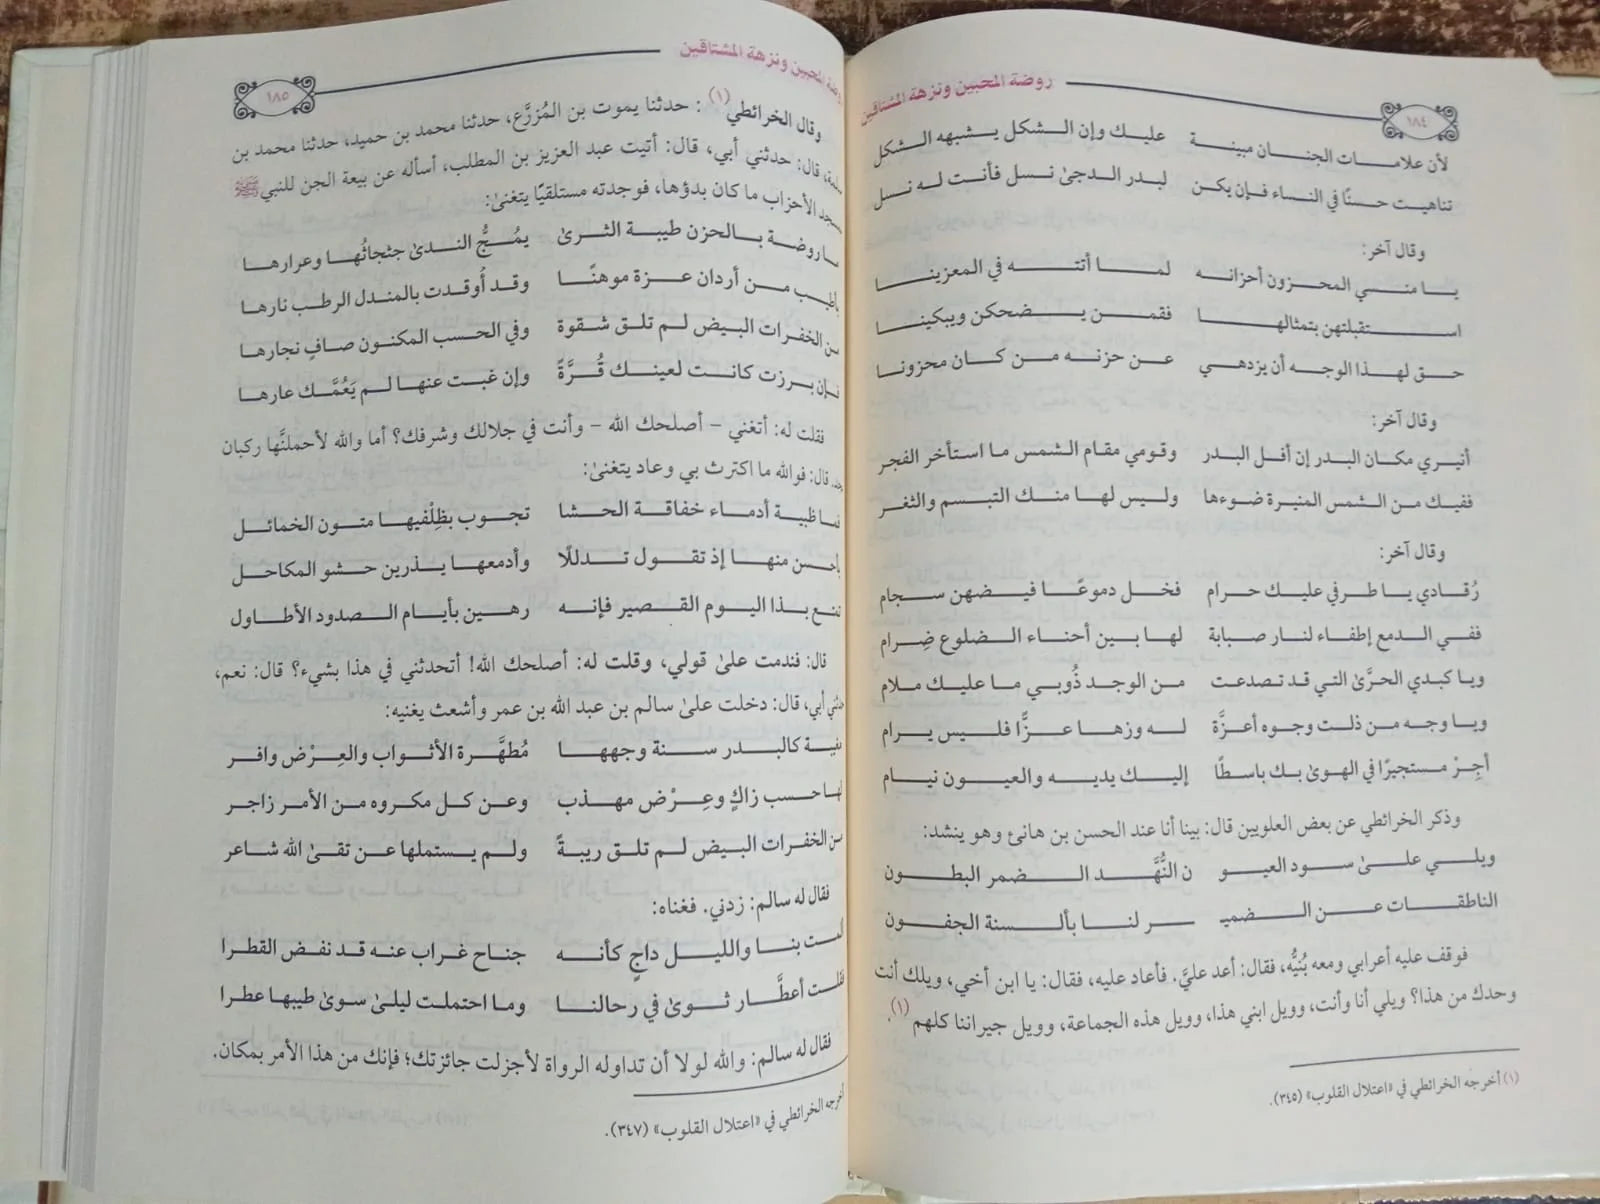 روضة المحبين ونزهة المشتاقين
١٨٤
لأن علامات الجنان مبينة عليك وإن الشكل يشبهه الشكل
تناهيت حسنًا في النساء فإن يكن لبدر الدجى نسل فأنت له نسل
وقال آخر:
يا منسي المحزون أحزانه لما أتته في المعزينا
استقبلتهن بتمثالها فقمن يضحكن ويبكينا
حق لهذا الوجه أن يزدهي عن حزنه من كان محزونا
وقال آخر:
أنيري مكان البدر إن أفل البدر وقومي مقام الشمس ما استأخر الفجر
ففيك من الشمس المنيرة ضوءها وليس لها منك التبسم والثغر
وقال آخر:
رُقادي يا طرفي عليك حرام فخل دموعًا فيضهن سجام
ففي الدمع إطفاء لنار صبابة لها بين أحناء الضلوع ضِرام
ويا كبدي الحرَّىٰ التي قد تصدعت من الوجد ذُوبي ما عليك ملام
ويا وجه من ذلت وجوه أعزَّة له وزها عزًّا فليس يرام
أجِرْ مستجيرًا في الهوىٰ بك باسطًا إليك يديه والعيون نيام
وذكر الخرائطي عن بعض العلويين قال: بينا أنا عند الحسن بن هانئ وهو ينشد:
ويلي علىٰ سود العيو ن النُّهَّد الضمر البطون
الناطقات عن الضميـ ـر لنا بألسنة الجفون
فوقف عليه أعرابي ومعه بُنيُّه، فقال: أعد عليَّ. فأعاد عليه، فقال: يا ابن أخي، ويلك أنت
وحدك من هذا؟ ويلي أنا وأنت، وويل ابني هذا، وويل هذه الجماعة، وويل جيراننا كلهم (١).
(١) أخرجه الخرائطي في «اعتلال القلوب» (٣٤٥).
روضة المحبين ونزهة المشتاقين
١٨٥
وقال الخرائطي (١): حدثنا يموت بن المُزرَّع، حدثنا محمد بن حميد، حدثنا محمد بن
سلمة، قال: حدثني أبي، قال: أتيت عبد العزيز بن المطلب، أسأله عن بيعة الجن للنبي ﷺ
بمسجد الأحزاب ما كان بدؤها، فوجدته مستلقيًا يتغنىٰ:
فما روضة بالحزن طيبة الثرىٰ يمُجُّ الندىٰ جثجاثُها وعرارها
بأطيب من أردان عزة موهنًا وقد أُوقدت بالمندل الرطب نارها
من الخفرات البيض لم تلق شقوة وفي الحسب المكنون صافٍ نجارها
فإن برزت كانت لعينك قُرَّةً وإن غبت عنها لم يَعُمَّك عارها
فقلت له: أتغني – أصلحك الله – وأنت في جلالك وشرفك؟ أما والله لأحملنَّها ركبان
نجد. قال: فوالله ما اكترث بي وعاد يتغنىٰ:
فما ظبية أدماء خفاقة الحشا تجوب بظِلْفيها متون الخمائل
بأحسن منها إذ تقول تدللًا وأدمعها يذرين حشو المكاحل
تمتع بذا اليوم القصير فإنه رهين بأيام الصدود الأطاول
قال: فندمت علىٰ قولي، وقلت له: أصلحك الله! أتحدثني في هذا بشيء؟ قال: نعم،
حدثني أبي، قال: دخلت علىٰ سالم بن عبد الله بن عمر وأشعث يغنيه:
مغنية كالبدر سنة وجهها مُطهَّرة الأثواب والعِرْض وافر
لها حسب زاكٍ وعِرْض مهذب وعن كل مكروه من الأمر زاجر
من الخفرات البيض لم تلق ريبةً ولم يستملها عن تقىٰ الله شاعر
فقال له سالم: زدني. فغناه:
ألمت بنا والليل داجٍ كأنه جناح غراب عنه قد نفض القطرا
فقلت أعطَّار ثوىٰ في رحالنا وما احتملت ليلىٰ سوىٰ طيبها عطرا
فقال له سالم: والله لولا أن تداوله الرواة لأجزلت جائزتك؛ فإنك من هذا الأمر بمكان.
أخرجه الخرائطي في «اعتلال القلوب» (٣٤٧).